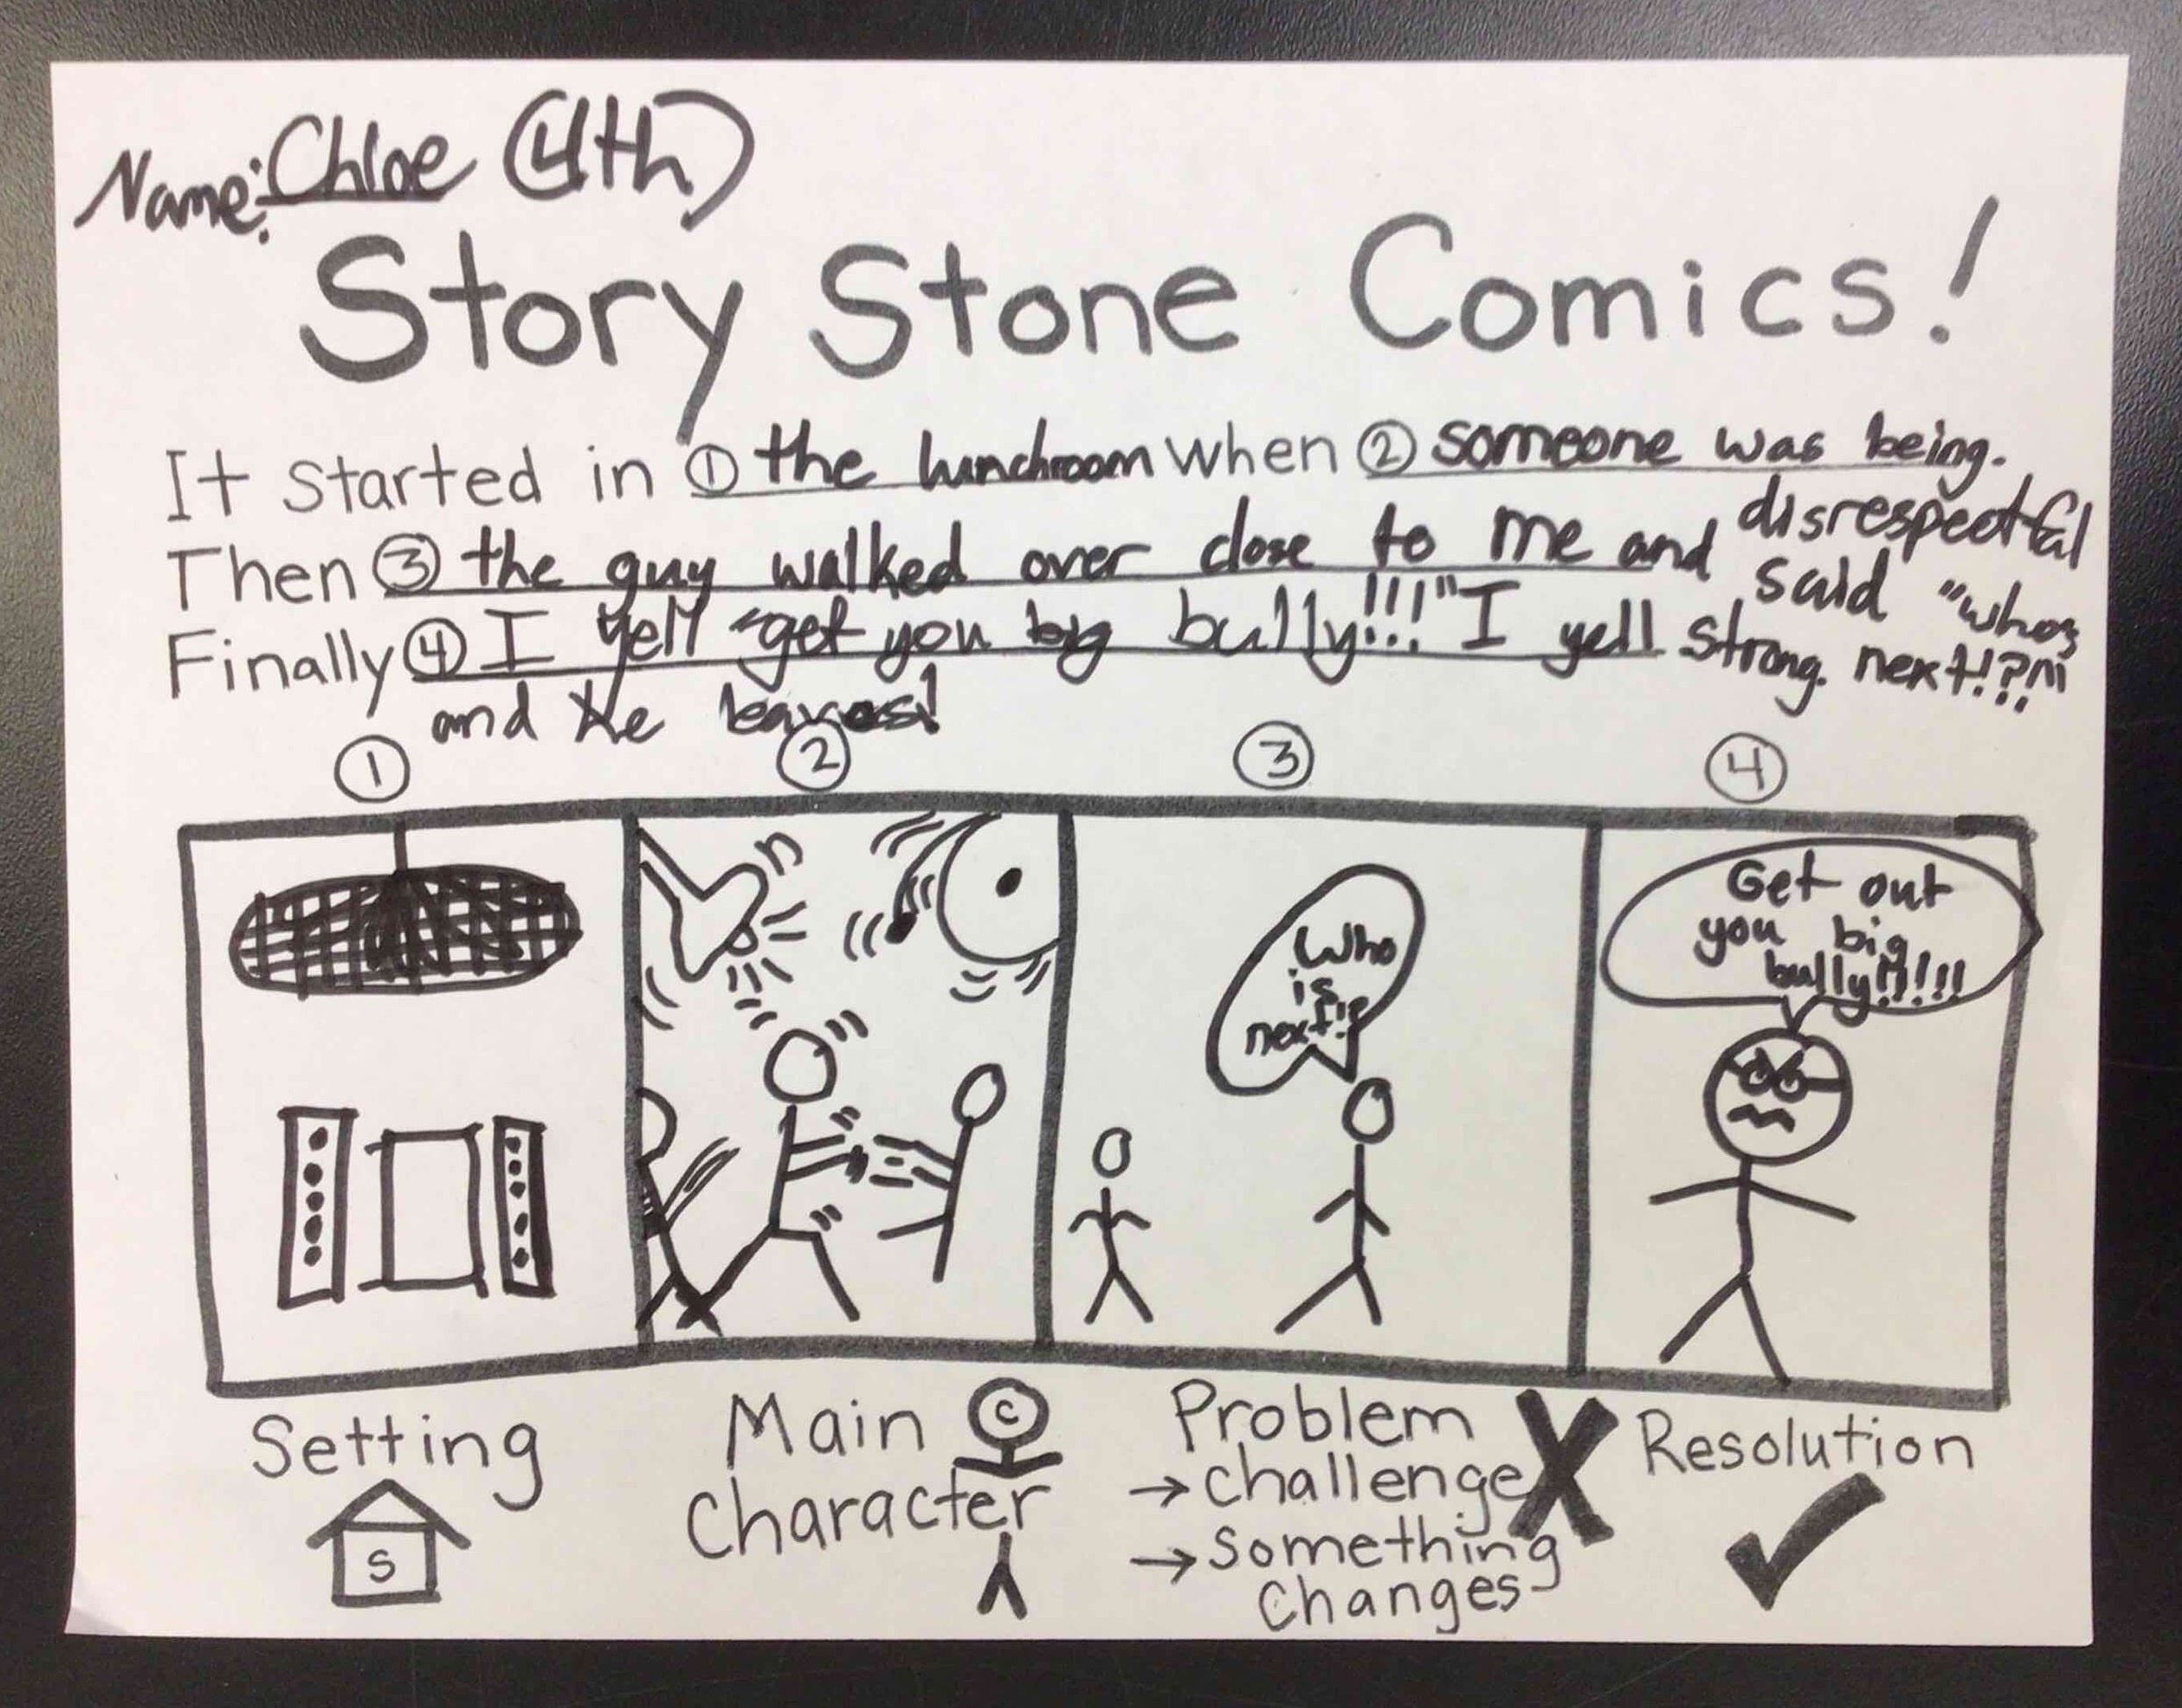 Name: Chloe (4th)
Story Stone Comics!
It started in ① the lunchroom when ② someone was being.
disrespectful
Then ③ the guy walked over close to me and said "whos next!?"
Finally ④ I yell "get you big bully!!!" I yell strong.
and he leaves!
① ② ③ ④
Who
is
next!?
Get out
you big
bully!!!!!!
Setting
S
Main
Character
C
Problem
→ challenge
→ something
changes
X
Resolution